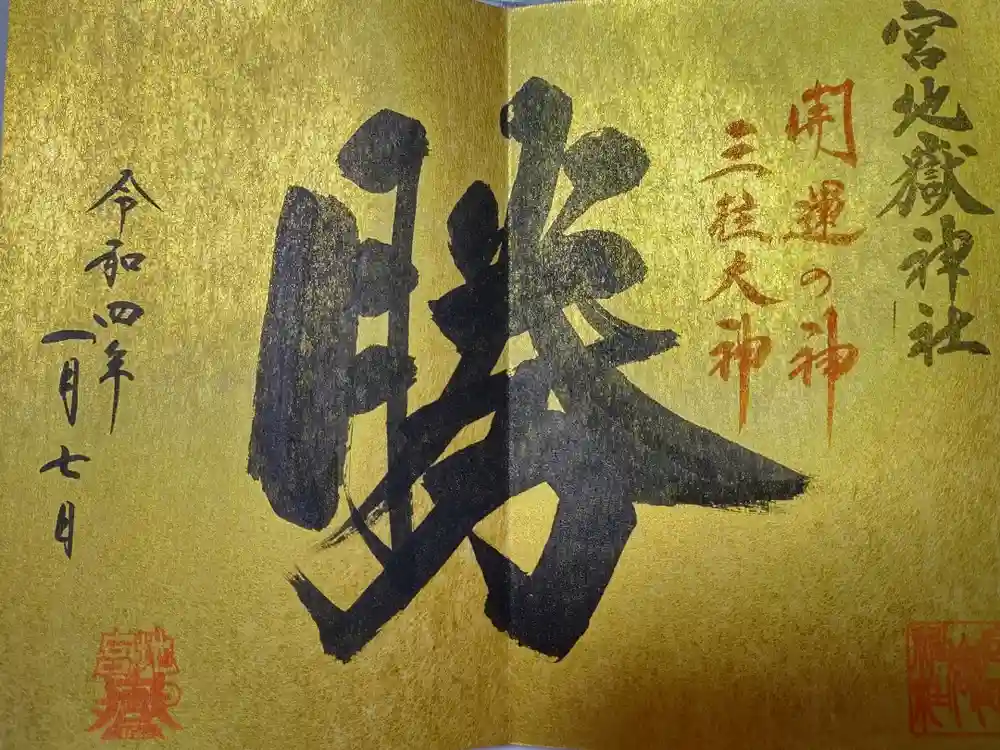 宮地嶽神社
開運の神
三柱大神
勝
令和四年
一月七日
宮地嶽